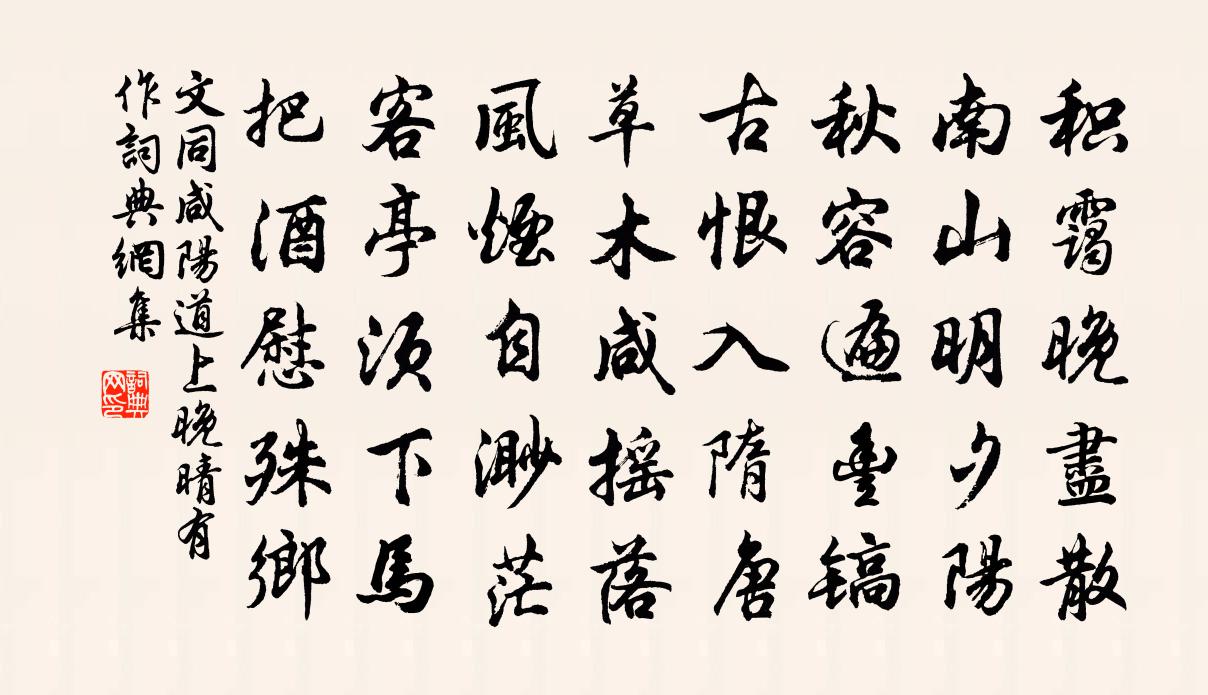 积靄晚盡散
南山明夕陽
秋容遍豊镐
古恨入隋唐
草木咸摇落
風煙自渺茫
客亭須下馬
把酒慰殊鄉
文同咸陽道上晚晴有
作詞典網集
詞典
网印